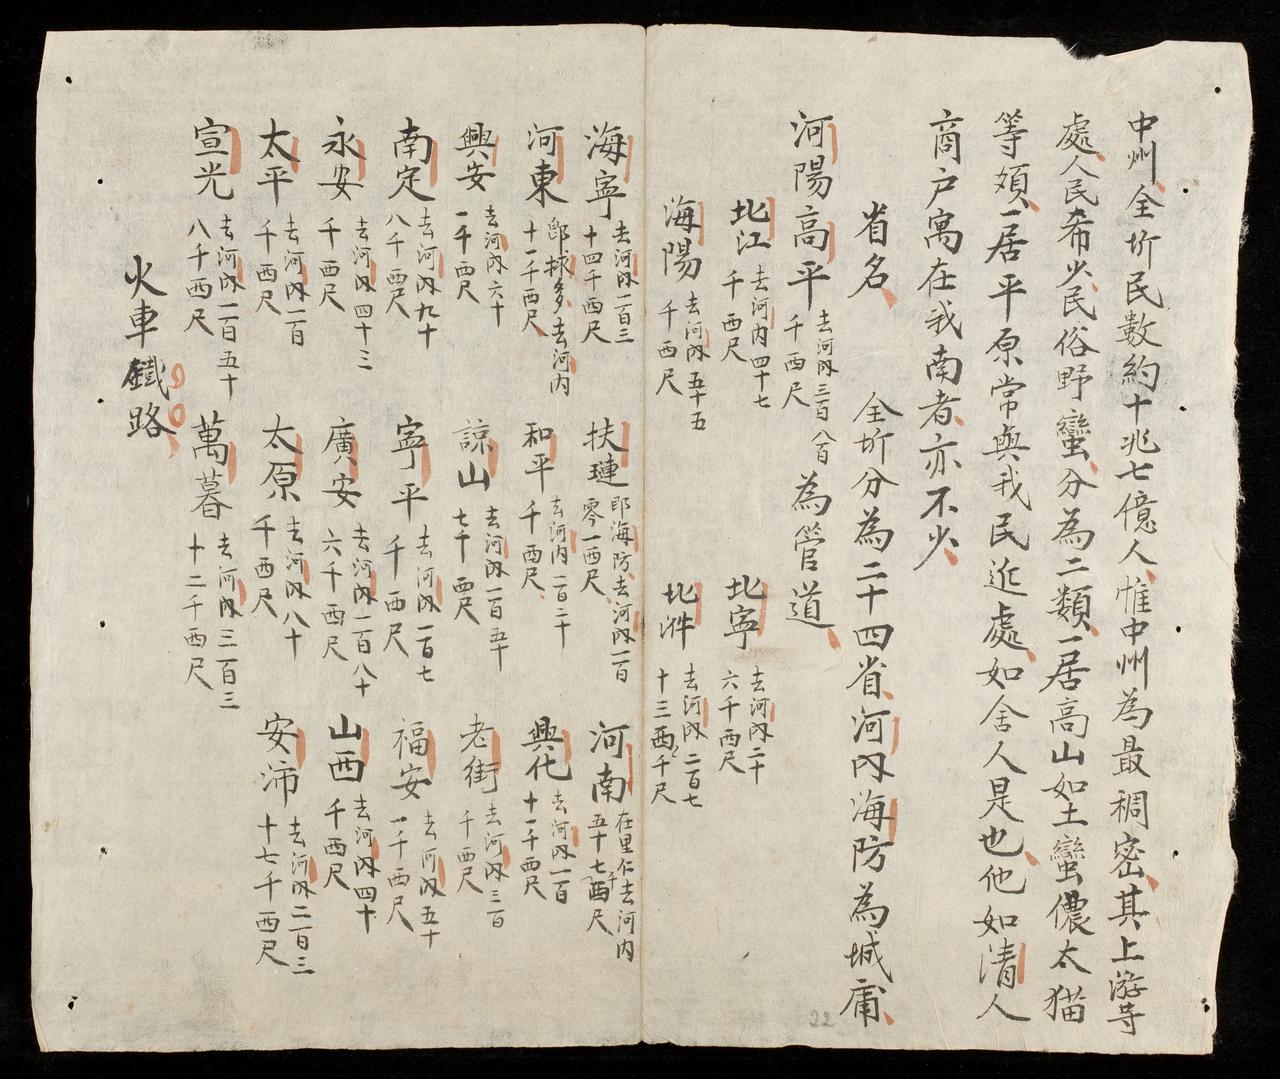 中州全圻民數約十兆七億人惟中州為最稠密其上游等
處人民希少民俗野蠻分為二類一居高山如土蠻儂太猫
等類一居平原常與我民近處如舍人是也他如清人
商户寓在我南者亦不少
省名 全圻分為二十四省河內海防為城庸
河陽高平去河內三百八百千西尺為管道
北江去河內四十七千西尺 北寧去河內二十六千西尺
海陽去河內五十五千西尺 北𣴓去河內二百七十三西千尺
海寧去河內二百三十四千西尺 扶璉即海防去河內一百零一西尺 河南在里仁去河內五十七千西尺
河東即梂多去河內十一千西尺 和平去河內一百二十千西尺 興化去河內一百十一千西尺
興安去河內六十一千西尺 諒山去河內一百五十七千西尺 老街去河內三百千西尺
南定去河內九十八千西尺 寧平去河內一百七千西尺 福安去河內五十一千西尺
永安去河內四十三千西尺 廣安去河內一百八十六千西尺 山西去河內四十千西尺
太平去河內一百千西尺 太原去河內八十千西尺 安沛去河內二百三十七千西尺
宣光去河內一百五十八千西尺 萬暮去河內三百三十二千西尺
火車鐵路